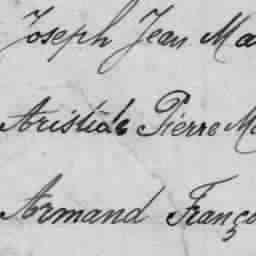 Joseph Jean Ma
Aristide Pierre Ma
Armand Franço